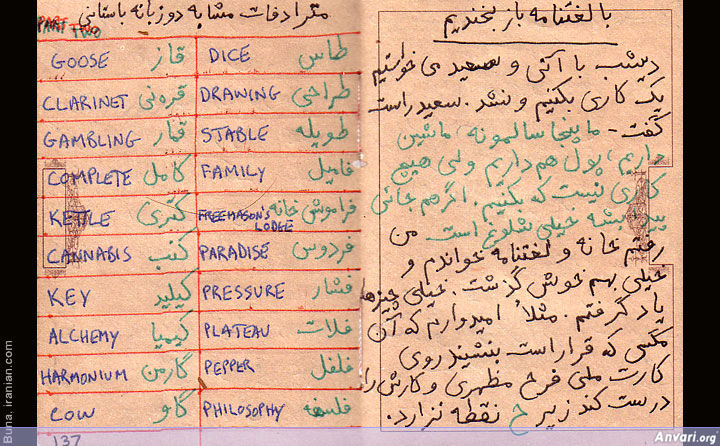 با لغتنامه باز بخندیم
دیشب با آتی و سعید می خواستیم
یک کاری بکنیم و نشد. سعید راست
گفت - ما پنجا سالمونه، ماشین
داریم، پول هم داریم ولی هیچ
کاری نیست که بکنیم. اگر هم جائی
پیدا بشه خیلی شلوغ است من
رفتم خانه و لغتنامه خواندم و
خیلی بهم خوش گذشت. خیلی چیزها
یاد گرفتم. مثلاً امیدوارم که آن
مگسی که قرار است بنشیند روی
کارت ملی فرخ مظهری و کارش را
درست کند زیر ح نقطه نزارد.
مترادفات مشابه دو زبانه باستانی
PART TWO
GOOSE قاز DICE طاس
CLARINET قره نی DRAWING طراحی
GAMBLING قمار STABLE طویله
COMPLETE کامل FAMILY فامیل
KETTLE کتری FREEMASON'S LODGE فراموش خانه
CANNABIS کنب PARADISE فردوس
KEY کیلید PRESSURE فشار
ALCHEMY کیمیا PLATEAU فلات
HARMONIUM گارمن PEPPER فلفل
COW گاو PHILOSOPHY فلسفه
137
Buna. iranian.com
Anvari.org